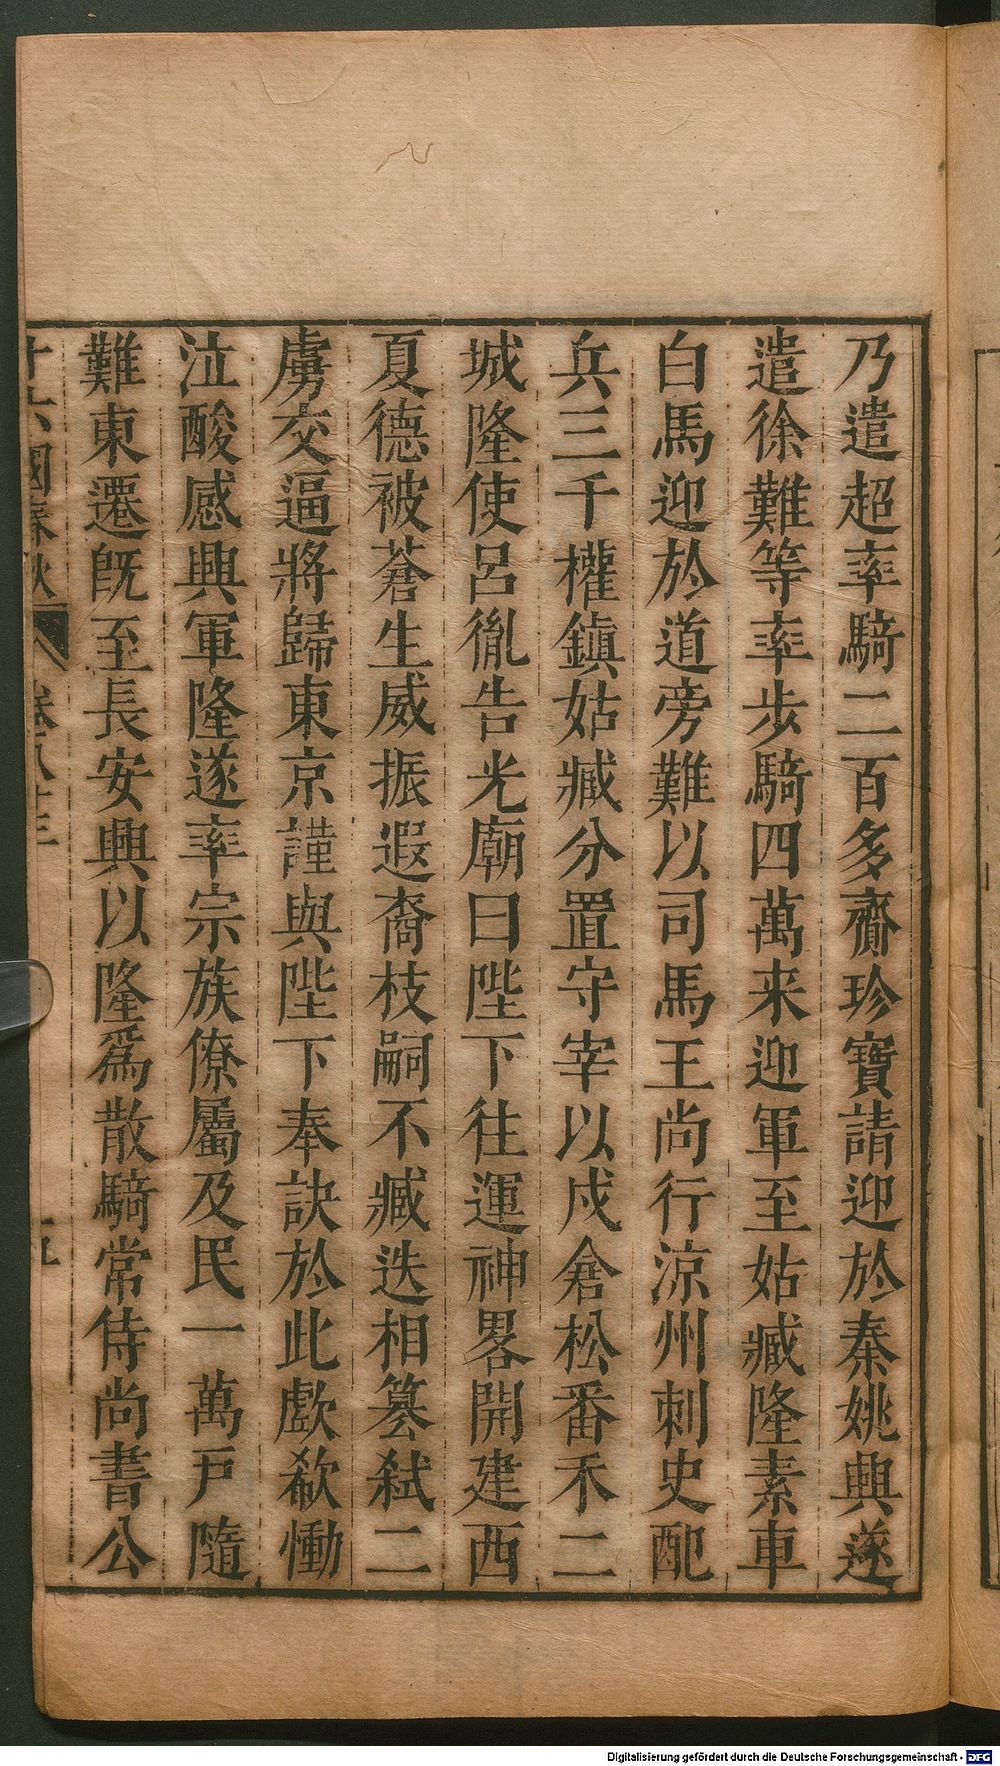 乃遣超率騎二百多齎珍寶請迎於秦姚興遂
遣徐難等率步騎四萬来迎軍至姑臧隆素車
白馬迎於道旁難以司馬王尚行涼州刺史配
兵三千權鎮姑臧分置守宰以戍倉松番禾二
城隆使呂胤告光廟曰陛下往運神畧開建西
夏德被蒼生威振遐裔枝嗣不臧迭相篡弒二
虜交逼將歸東京謹與陛下奉訣於此歔欷慟
泣酸感興軍隆遂率宗族僚屬及民一萬戸隨
難東遷旣至長安興以隆爲散騎常侍尚書公
十六國春秋 卷八十三 十五
Digitalisierung gefördert durch die Deutsche Forschungsgemeinschaft - DFG